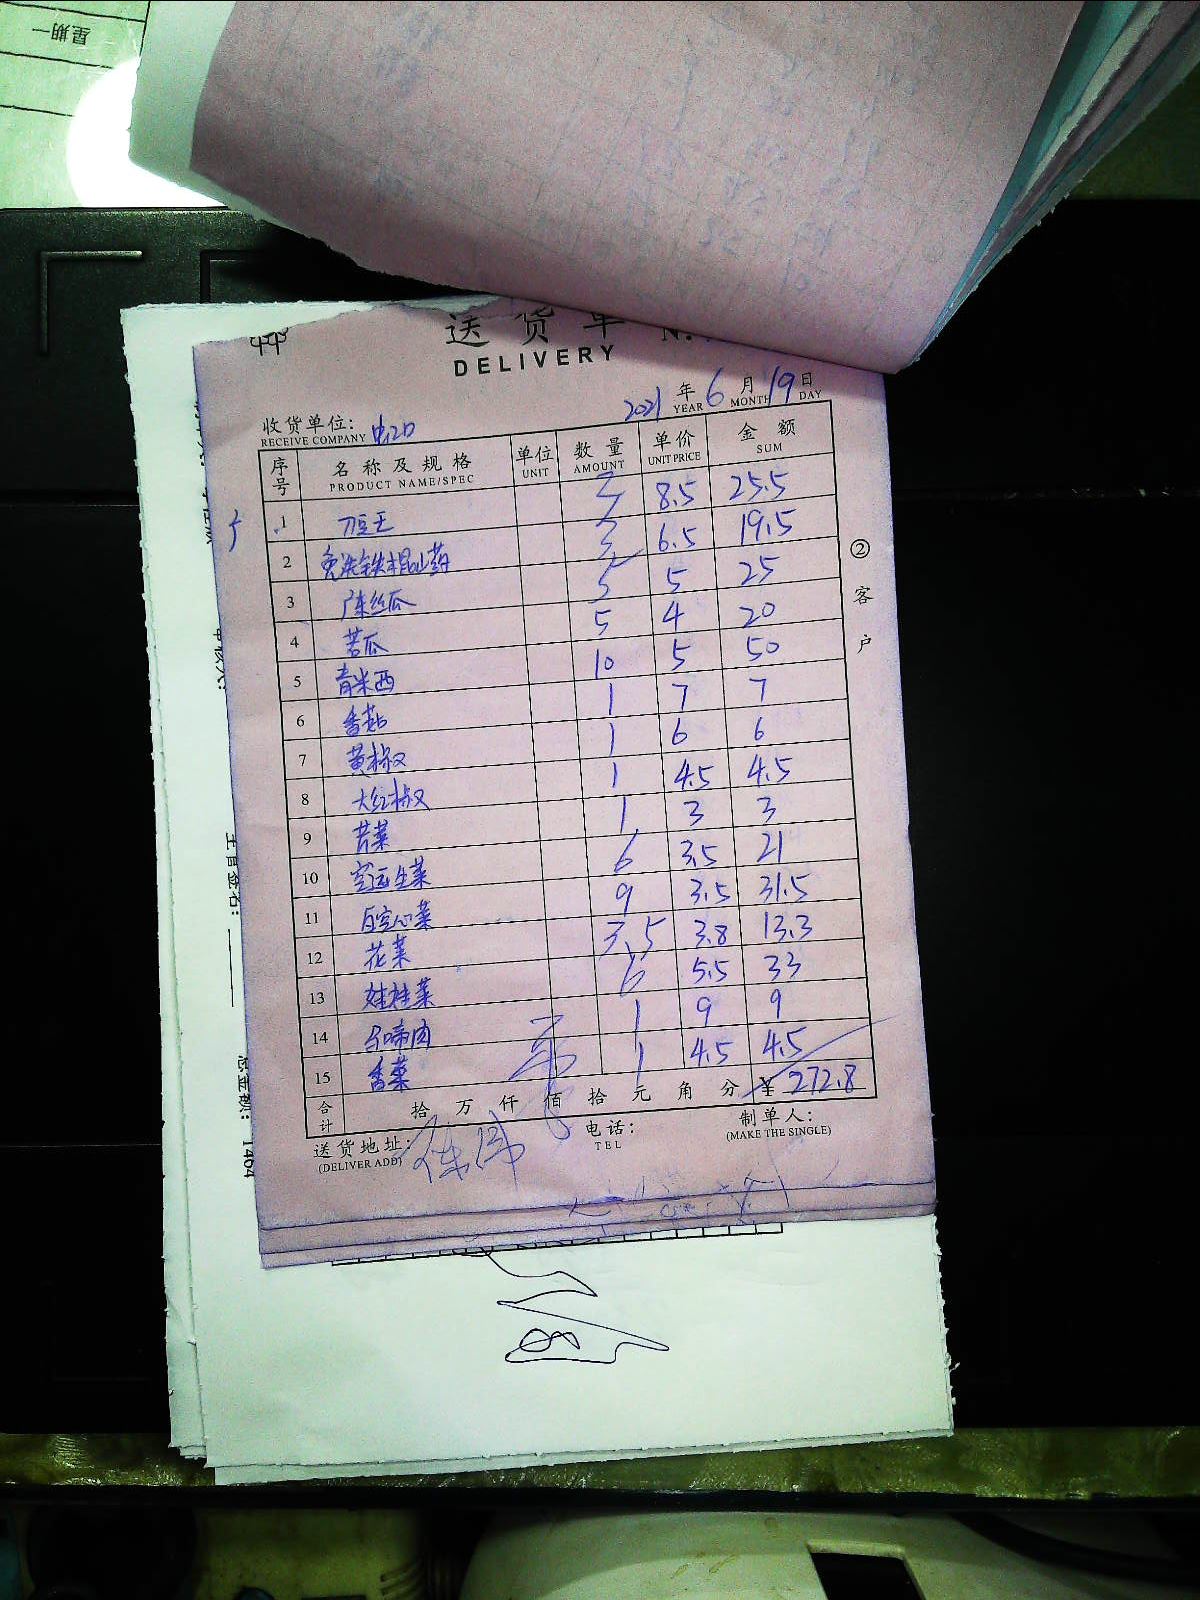 星期一
送货单 N.
DELIVERY
2021 年 6 月 19 日
YEAR MONTH DAY
收货单位:
RECEIVE COMPANY
序号 名称及规格 单位 数量 单价 金额
PRODUCT NAME/SPEC UNIT AMOUNT UNIT PRICE SUM
1 刀豆王 3 8.5 25.5
2 免洗铁棍山药 3 6.5 19.5
3 广东丝瓜 5 5 25
4 苦瓜 5 4 20
5 青米西 10 5 50
6 香菇 1 7 7
7 黄椒 1 6 6
8 大红椒 1 4.5 4.5
9 苦菜 1 3 3
10 空运生菜 6 3.5 21
11 白空心菜 9 3.5 31.5
12 花菜 3.5 3.8 13.3
13 娃娃菜 6 5.5 33
14 1 9 9
15 香菜 1 4.5 4.5
合计 拾 万 仟 佰 拾 元 角 分 ¥ 272.8
送货地址: 电话: 制单人:
(DELIVER ADD) TEL (MAKE THE SINGLE)
②客户
主管签名:
总金额: 1404